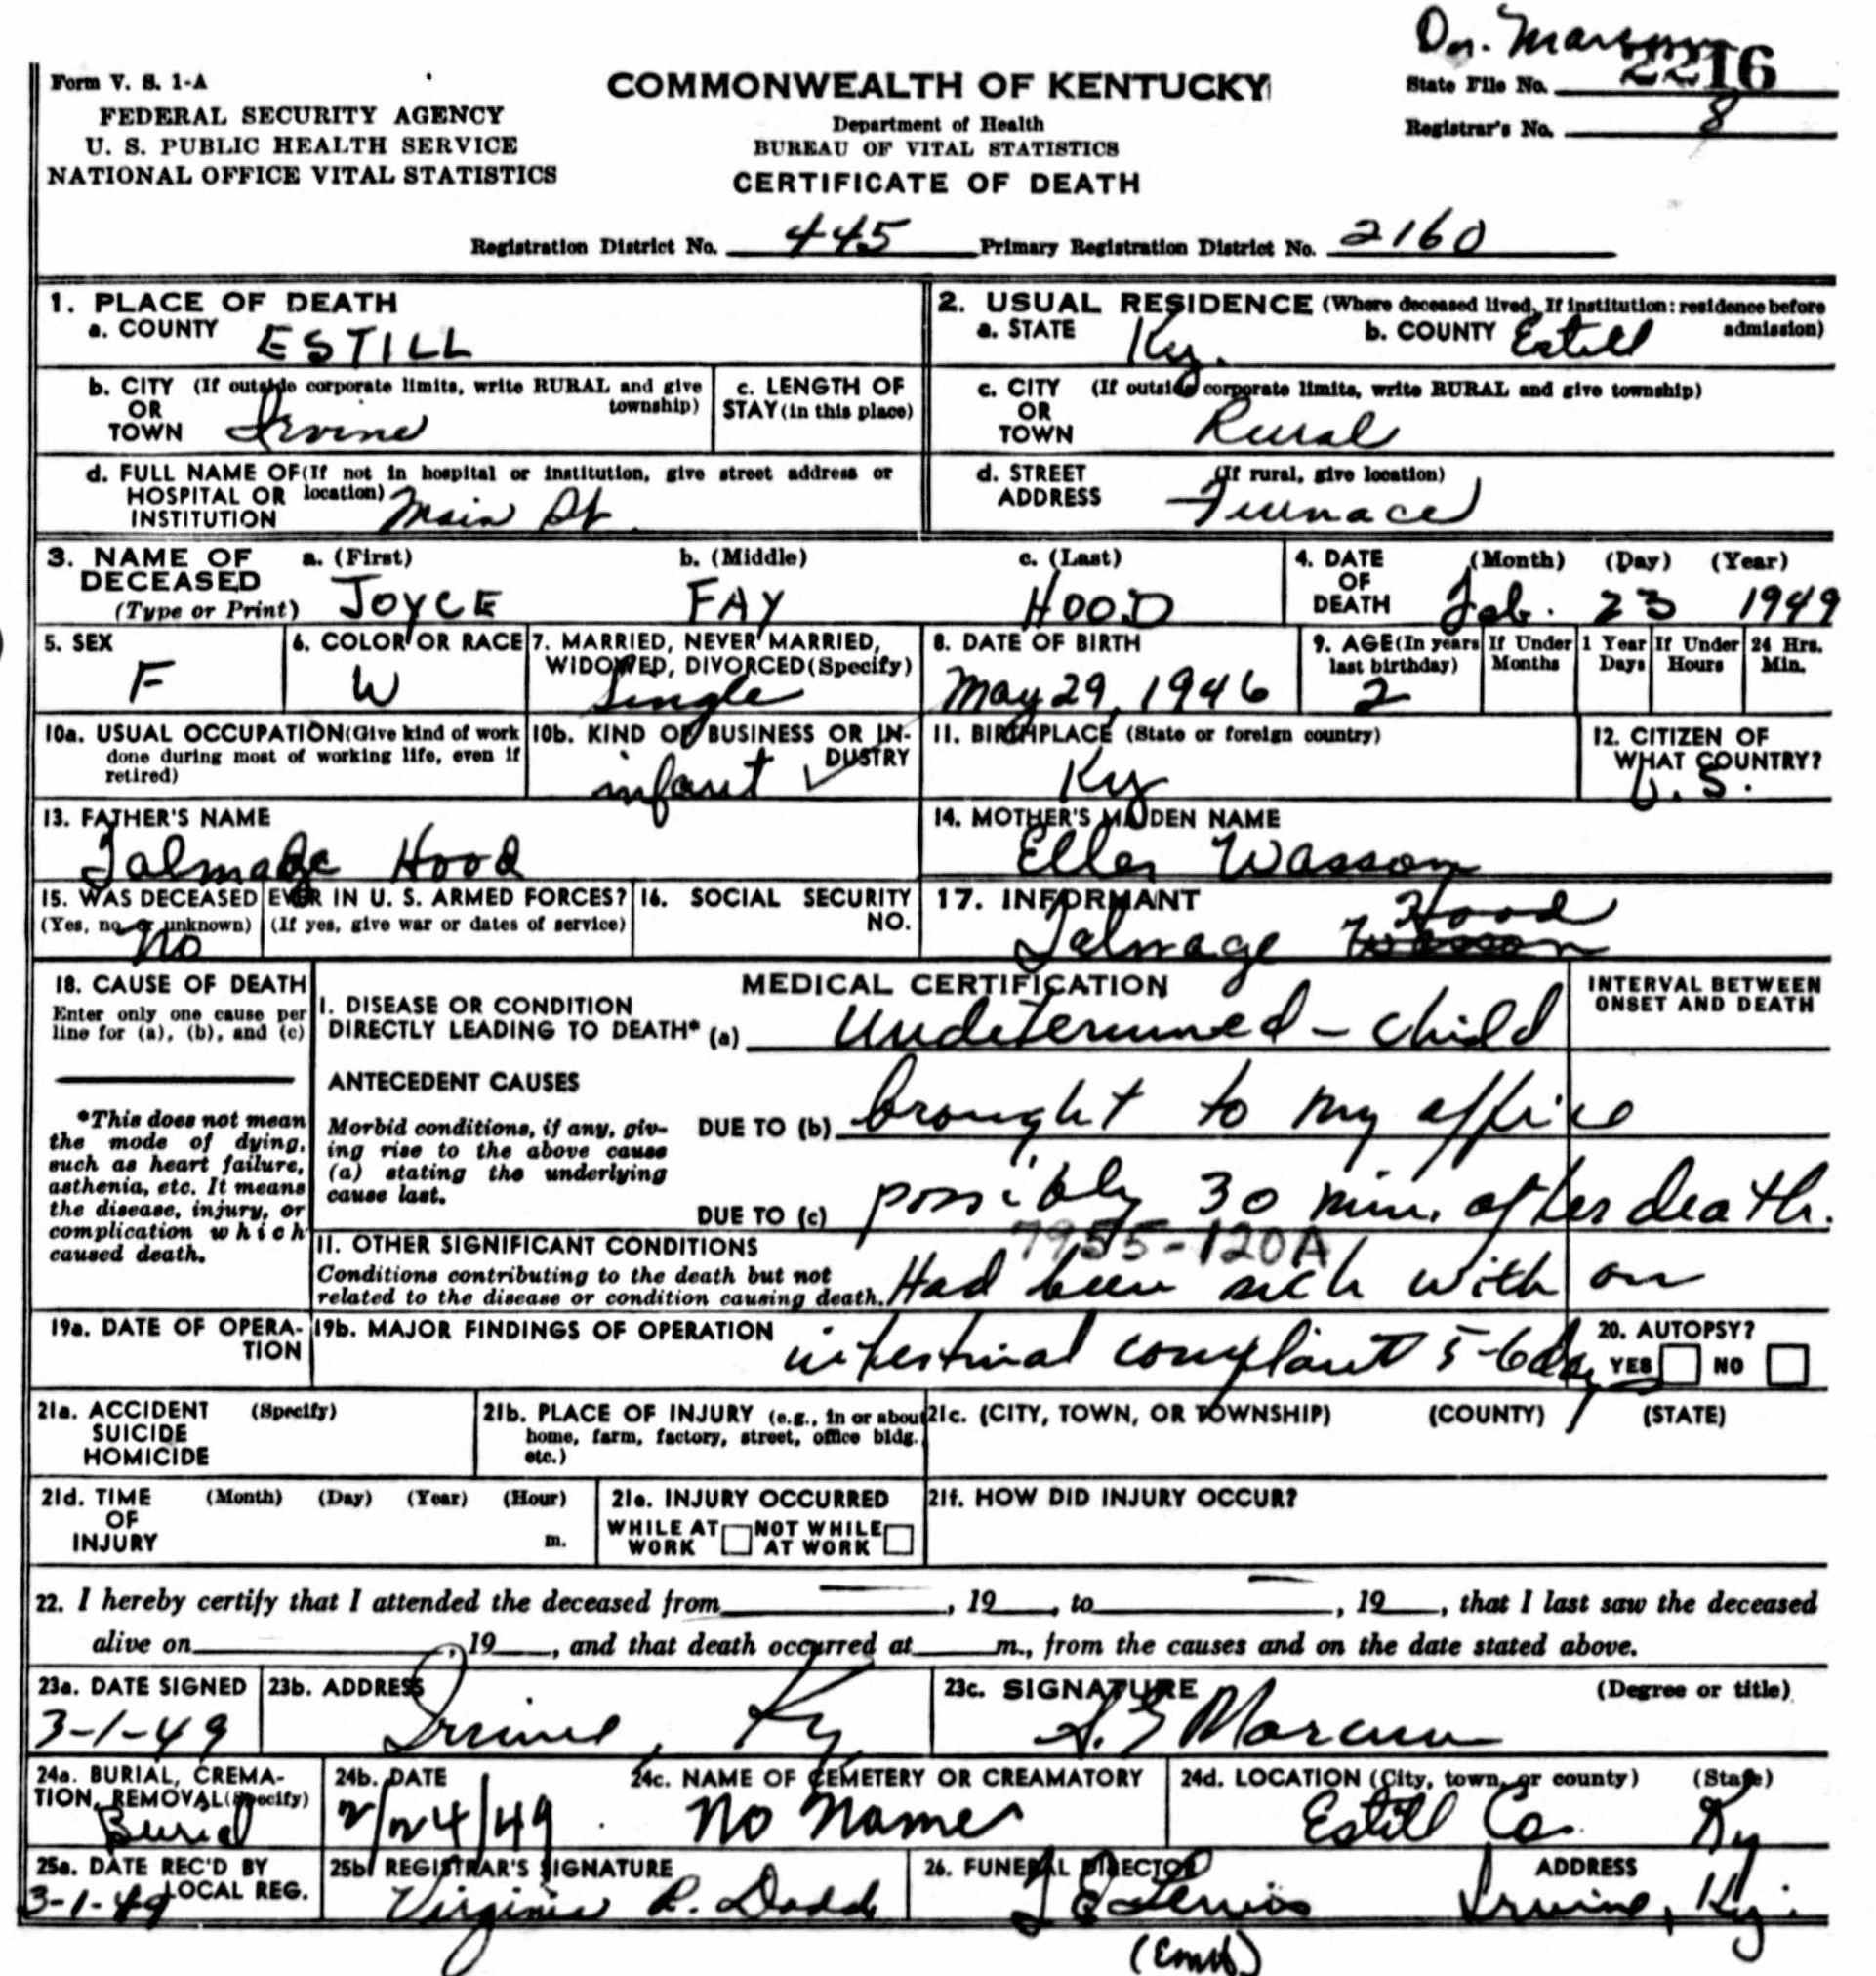 Dr. Marcum
Form V. S. 1-A
COMMONWEALTH OF KENTUCKY
State File No. 2216
FEDERAL SECURITY AGENCY
Department of Health
Registrar's No. 8
U. S. PUBLIC HEALTH SERVICE
BUREAU OF VITAL STATISTICS
NATIONAL OFFICE VITAL STATISTICS
CERTIFICATE OF DEATH
Registration District No. 445 Primary Registration District No. 2160
1. PLACE OF DEATH
a. COUNTY ESTILL
b. CITY (If outside corporate limits, write RURAL and give township)
OR
TOWN Irvine
c. LENGTH OF
STAY (in this place)
d. FULL NAME OF (If not in hospital or institution, give street address or
HOSPITAL OR location)
INSTITUTION Main St.
2. USUAL RESIDENCE (Where deceased lived, If institution: residence before admission)
a. STATE Ky. b. COUNTY Estill
c. CITY (If outside corporate limits, write RURAL and give township)
OR
TOWN Rural
d. STREET (If rural, give location)
ADDRESS Furnace
3. NAME OF a. (First) b. (Middle) c. (Last)
DECEASED
(Type or Print) JOYCE FAY HOOD
4. DATE (Month) (Day) (Year)
OF
DEATH Feb. 23 1949
5. SEX
F
6. COLOR OR RACE
W
7. MARRIED, NEVER MARRIED,
WIDOWED, DIVORCED (Specify)
Single
8. DATE OF BIRTH
May 29, 1946
9. AGE (In years last birthday)
2
If Under 1 Year
Months Days
If Under 24 Hrs.
Hours Min.
10a. USUAL OCCUPATION (Give kind of work
done during most of working life, even if
retired)
10b. KIND OF BUSINESS OR INDUSTRY
infant ✓
11. BIRTHPLACE (State or foreign country)
Ky
12. CITIZEN OF
WHAT COUNTRY?
U. S.
13. FATHER'S NAME
Talmage Hood
14. MOTHER'S MAIDEN NAME
Ellen Wasson
15. WAS DECEASED EVER IN U. S. ARMED FORCES?
(Yes, no, or unknown) (If yes, give war or dates of service)
No
16. SOCIAL SECURITY
NO.
17. INFORMANT
Hood
Talmage Wasson
18. CAUSE OF DEATH
Enter only one cause per
line for (a), (b), and (c)
*This does not mean
the mode of dying,
such as heart failure,
asthenia, etc. It means
the disease, injury, or
complication which
caused death.
MEDICAL CERTIFICATION
INTERVAL BETWEEN
ONSET AND DEATH
I. DISEASE OR CONDITION
DIRECTLY LEADING TO DEATH* (a) Undetermined - child
ANTECEDENT CAUSES
Morbid conditions, if any, giv-
ing rise to the above cause
(a) stating the underlying
cause last.
DUE TO (b) brought to my office
DUE TO (c) possibly 30 min. after death.
7955-120A
II. OTHER SIGNIFICANT CONDITIONS
Conditions contributing to the death but not
related to the disease or condition causing death. Had been sick with an
19a. DATE OF OPERA-
TION
19b. MAJOR FINDINGS OF OPERATION
intestinal complaint 5-6 day
20. AUTOPSY?
YES NO
21a. ACCIDENT (Specify)
SUICIDE
HOMICIDE
21b. PLACE OF INJURY (e.g., in or about
home, farm, factory, street, office bldg.
etc.)
21c. (CITY, TOWN, OR TOWNSHIP) (COUNTY) (STATE)
21d. TIME (Month) (Day) (Year) (Hour)
OF
INJURY m.
21e. INJURY OCCURRED
WHILE AT NOT WHILE
WORK AT WORK
21f. HOW DID INJURY OCCUR?
22. I hereby certify that I attended the deceased from , 19 , to , 19 , that I last saw the deceased
alive on , 19 , and that death occurred at m., from the causes and on the date stated above.
23a. DATE SIGNED
3-1-49
23b. ADDRESS
Irvine, Ky
23c. SIGNATURE (Degree or title)
S. G Marcum
24a. BURIAL, CREMA-
TION, REMOVAL (Specify)
Burial
24b. DATE
2/24/49
24c. NAME OF CEMETERY OR CREAMATORY
No Name
24d. LOCATION (City, town, or county) (State)
Estill Co. Ky
25a. DATE REC'D BY
LOCAL REG.
3-1-49
25b. REGISTRAR'S SIGNATURE
Virginia R. Dodd
26. FUNERAL DIRECTOR ADDRESS
Lewis Irvine, Ky.
(Emb.)